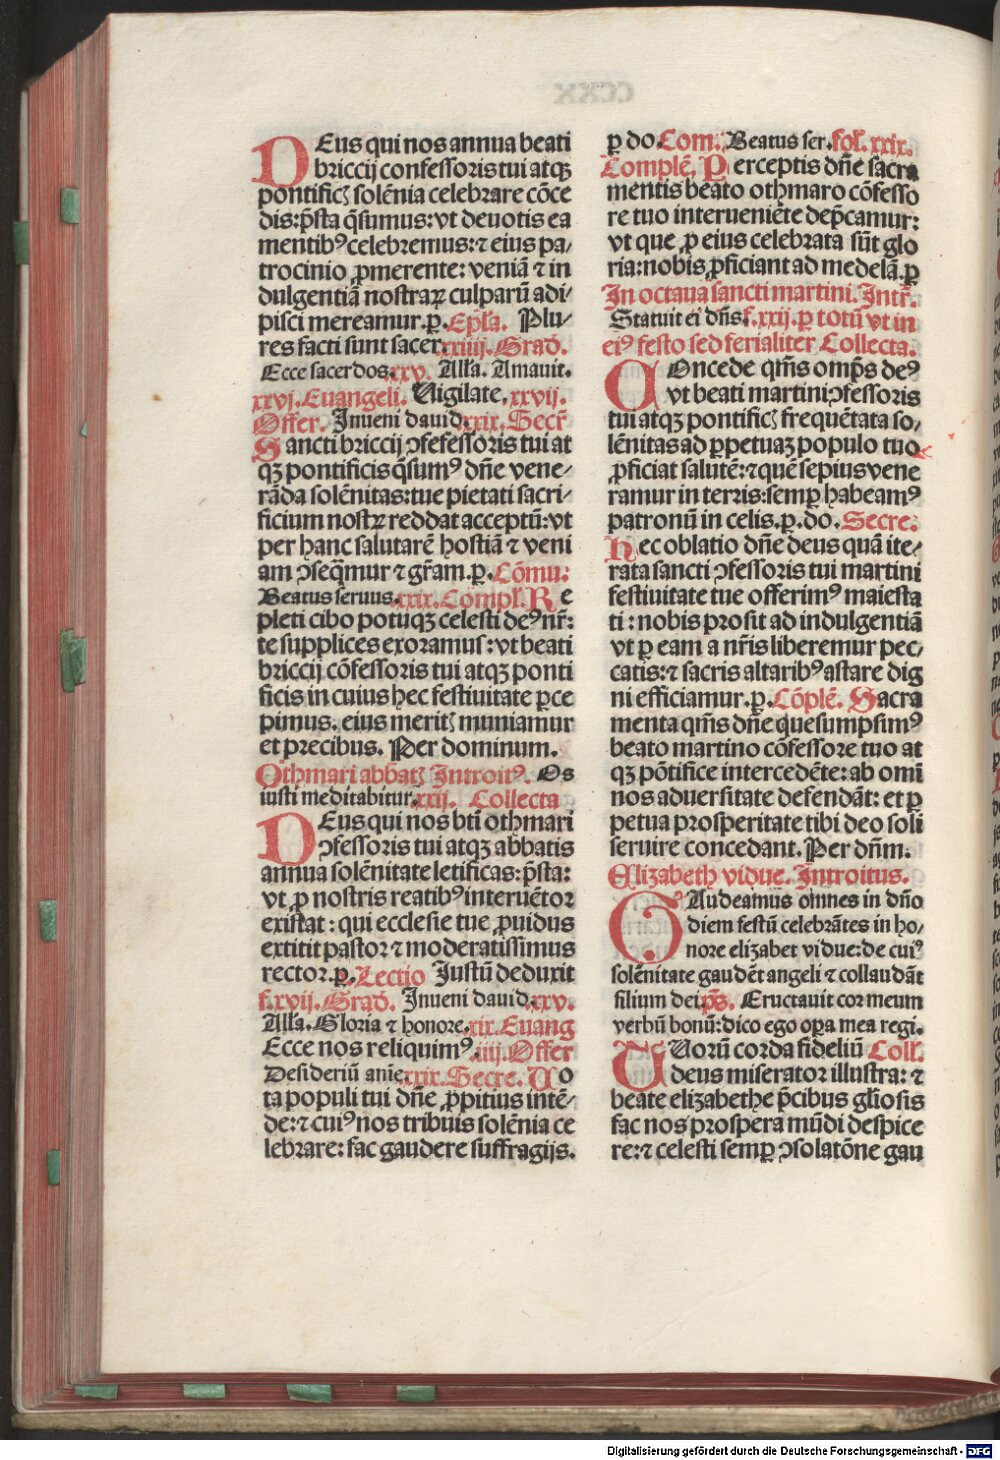 DEus qui nos annua beati
briccij confessoris tui atqȝ
pontificꝭ solēnia celebrare cōce
dis: p̄sta q̄sumus: vt deuotis ea
mentibꝰ celebremus: ⁊ eius pa/
trocinio ꝓmerente: veniā ⁊ in
dulgentiā nostraꝝ culparū adi/
pisci mereamur. ꝑ. Epl̄a. Plu/
res facti sunt sacer. xxiiij. Grad̄.
Ecce sacerdos. xxv. All̄a. Amauit.
xxvj. Euangeli. Uigilate. xxvij.
Offer. Inueni dauid. xxix. Secr̄
Sancti briccij ↄfefessoris tui at
qȝ pontificis q̄sumꝰ dn̄e vene/
rāda solēnitas: tue pietati sacri/
ficium nostꝝ reddat acceptū: vt
per hanc salutarē hostiā ⁊ veni
am ↄseq̄mur ⁊ gr̄am. ꝑ. Cōmu:
Beatus seruus. xxix. Compl̄. Re
pleti cibo potuqȝ celesti deꝰ nr̄:
te supplices exoramus: vt beati
briccij cōfessoris tui atqȝ ponti
ficis in cuius hec festiuitate ꝑce
pimus. eius meritꝭ muniamur
et precibus. Per dominum.
Othmari abbatꝭ Introitꝰ. Os
iusti meditabitur. xxij. Collecta
DEus qui nos bt̄i othmari
ↄfessoris tui atqȝ abbatis
annua solēnitate letificas: p̄sta:
vt ꝓ nostris reatibꝰ interuētor
existat: qui ecclesie tue ꝓuidus
extitit pastor ⁊ moderatissimus
rector. ꝑ. Lectio Iustū deduxit
f. xvij. Grad̄. Inueni dauid. xxv.
All̄a. Gloria ⁊ honore. xix. Euang
Ecce nos reliquimꝰ. iiij. Offer
Desideriū anie. xxix. Secre. Uo
ta populi tui dn̄e ꝓpitius intē/
de: ⁊ cuiꝰ nos tribuis solēnia ce
lebrare: fac gaudere suffragijs.
ꝑ do. Com̄: Beatus ser. fol̄. xxix.
Complē. Perceptis dn̄e sacra
mentis beato othmaro cōfesso
re tuo interueniēte dep̄camur:
vt que ꝓ eius celebrata sūt glo
ria: nobis ꝓficiant ad medelā. ꝑ
In octaua sancti martini. Intr̄.
Statuit ei dn̄s. f. xxij. ꝑ totū vt in
eiꝰ festo sed ferialiter Collecta.
COncede qm̄s omp̄s deꝰ
vt beati martini ↄfessoris
tui atqȝ pontificꝭ frequētata so/
lēnitas ad ꝑpetuaȝ populo tuo
ꝓficiat salutē: ⁊ quē sepius vene
ramur in terris: semꝑ habeamꝰ
patronū in celis. ꝑ. do. Secre:
Hec oblatio dn̄e deus quā ite/
rata sancti ↄfessoris tui martini
festiuitate tue offerimꝰ maiesta
ti: nobis prosit ad indulgentiā
vt ꝑ eam a nr̄is liberemur pec/
catis: ⁊ sacris altaribꝰ astare dig
ni efficiamur. ꝑ. Cōplē. Sacra
menta qm̄s dn̄e que sumpsimꝰ
beato martino cōfessore tuo at
qȝ pōtifice intercedēte: ab omī
nos aduersitate defendāt: et ꝑ
petua prosperitate tibi deo soli
seruire concedant. Per dn̄m.
Elizabeth vidue. Introitus.
GAudeamus omnes in dn̄o
diem festū celebrātes in ho/
nore elizabet vidue: de cuiꝰ
solēnitate gaudēt angeli ⁊ collaudāt
filium dei. p̄s. Eructauit cor meum
verbū bonū: dico ego oꝑa mea regi.
TUorū corda fideliū Coll̄.
deus miserator illustra: ⁊
beate elizabethe p̄cibus gl̄iosis
fac nos prospera mūdi despice
re: ⁊ celesti semꝑ ↄsolatōne gau
Digitalisierung gefördert durch die Deutsche Forschungsgemeinschaft - DFG